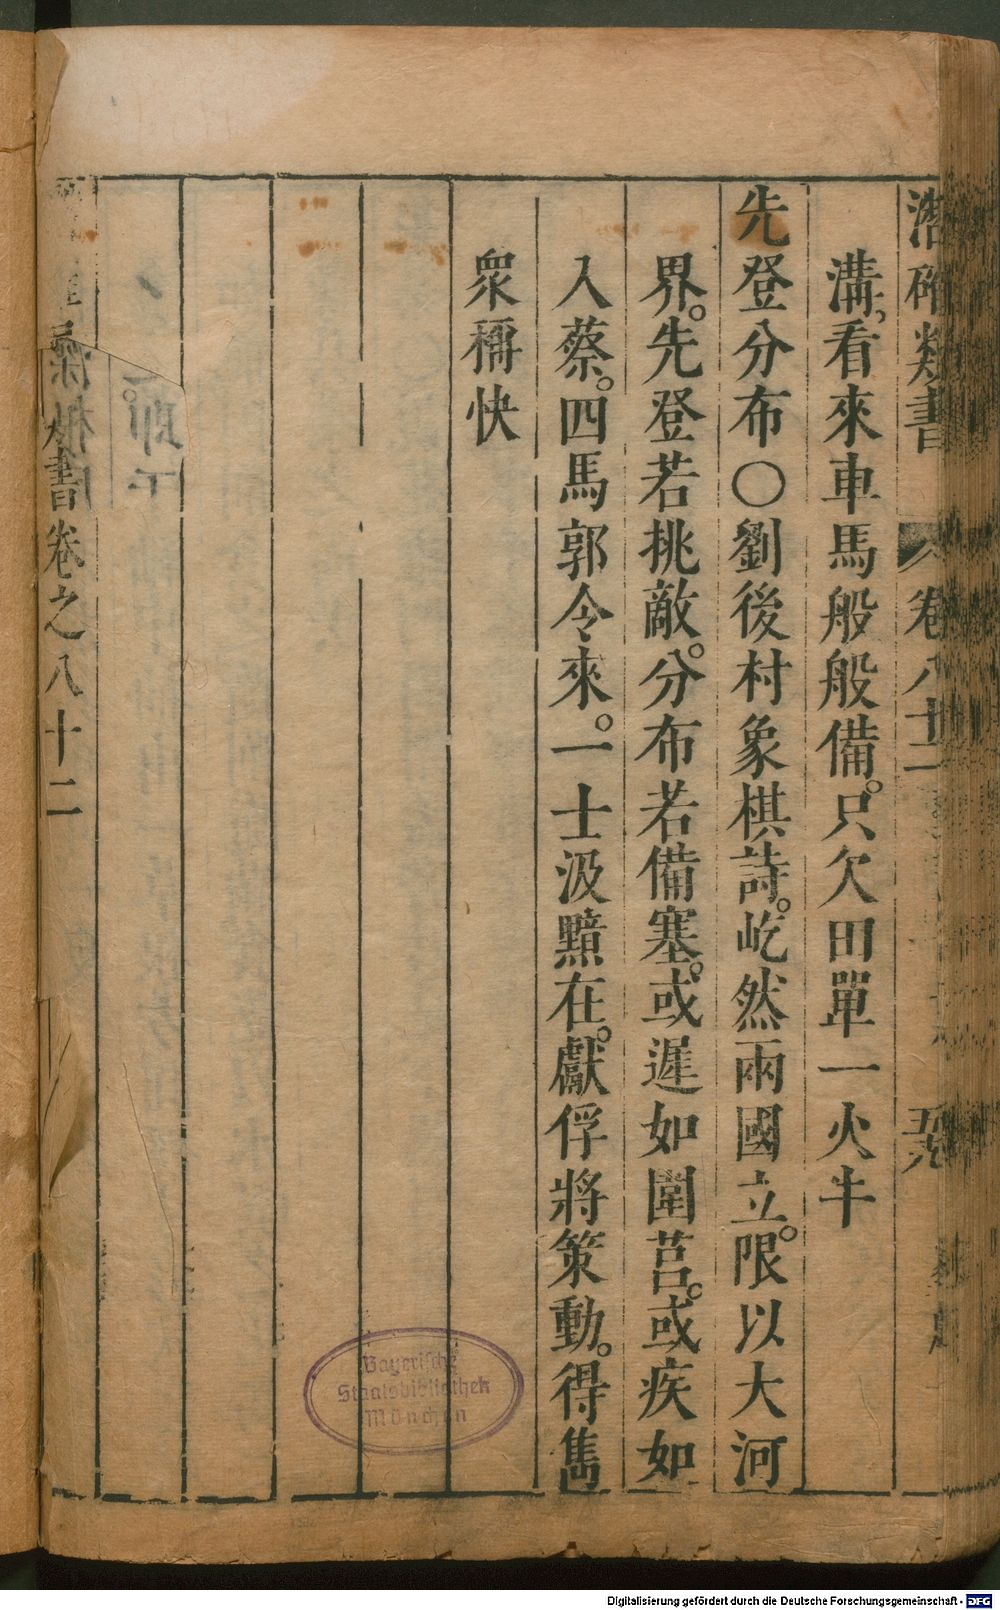 潛確類書 卷八十二 五十九
溝看來車馬般般備。只欠田單一火牛
先登分布○劉後村象棋詩。屹然兩國立。限以大河
界。先登若挑敵。分布若備塞。或遲如圍莒。或疾如
入蔡。四馬郭令來。一士汲黯在。獻俘將策動。得雋
衆稱快
書卷之八十二
Bayerische
Staatsbibliothek
München
Digitalisierung gefördert durch die Deutsche Forschungsgemeinschaft - DFG